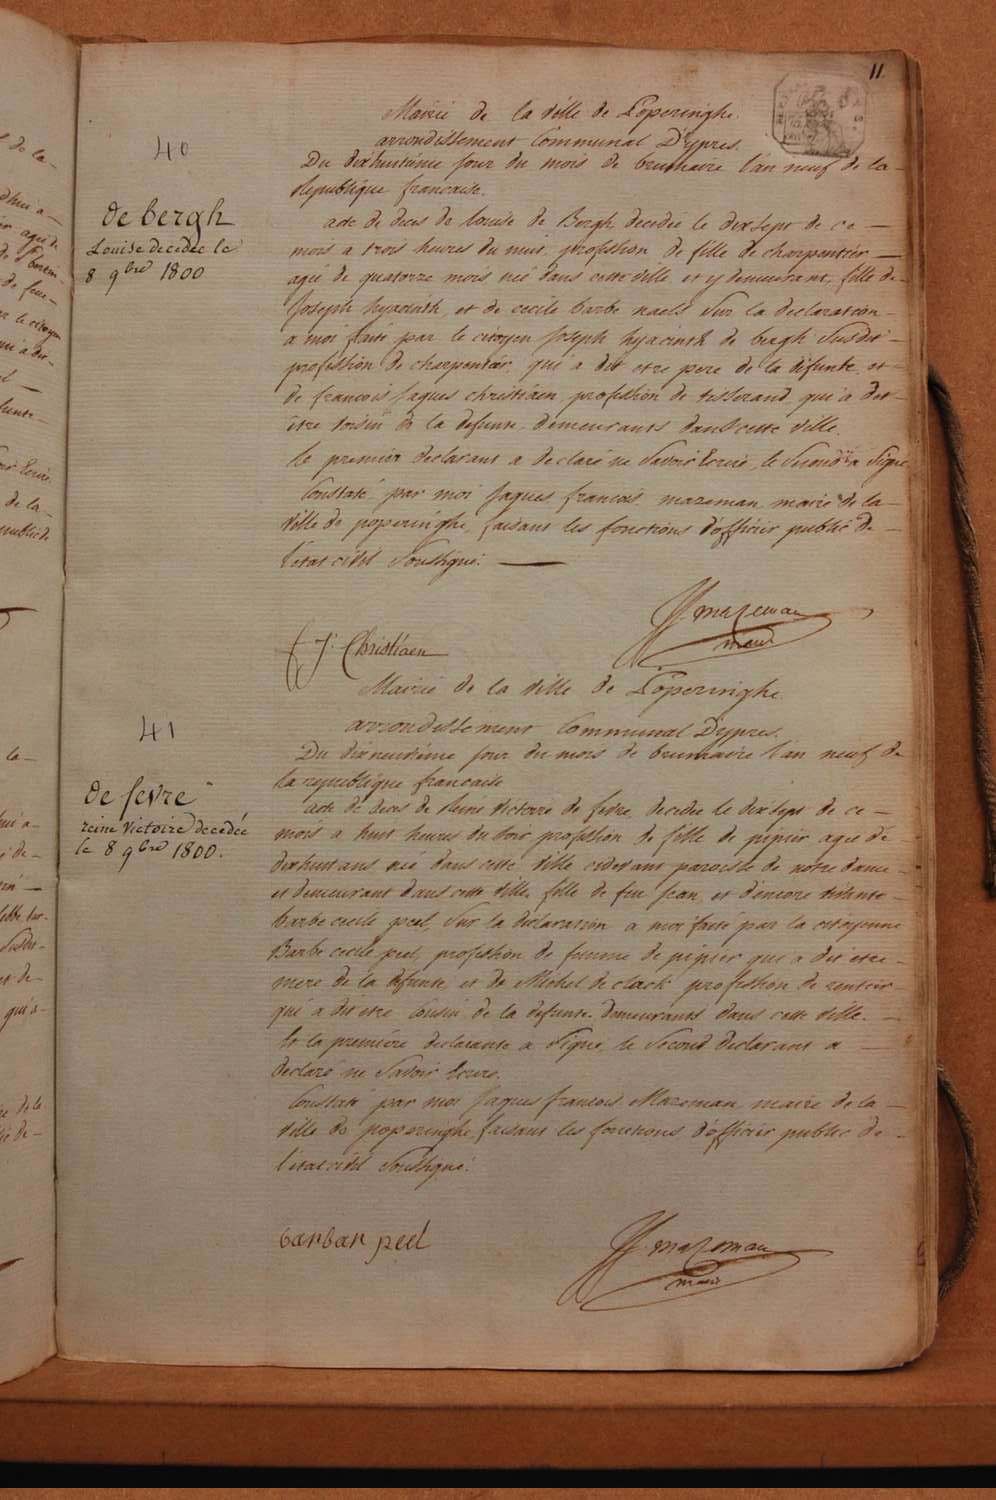 11
Mairie de la ville de Poperinghe.
arrondissement Communal D'ypres.
40
Du dixhuitieme jour du mois de brumaire l'an neuf de la
Republique francaise.
de bergh
Louise decedée le
8 9bre 1800
acte de deces de louise de Bergh decedee le dixsept de ce
mois a trois heures du nuit, profession de fille de charpentier
agée de quatorze mois née dans cette ville et y demeurant, fille de
Joseph hyacinth, et de cecile barbe naels sur la declaration
a moi faite par le citoyen Joseph hyacinth de bergh Susdit
profession de charpentier, qui a dit etre pere de la defunte, et
de francois Jaques christiaen, profession de tisserand, qui a dit
être voisin de la defunte, demeurants dans cette ville.
le premier declarant a declaré ne Savoir Ecrire, le Second a Signe
Constaté par moi Jaques francois mazeman maire de la
ville de poperinghe, faisant les fonctions d'officier public de
l'etat civil Soussigné.
mazeman
maire
J. Christiaen
Mairie de la ville de Poperinghe.
arrondissement Communal D'ypres.
41
Du dixneuvieme jour du mois de brumaire l'an neuf de
la republique francaise
de fevre
reine victoire decedée
le 8 9bre 1800.
acte de deces de Reine Victoire de fevre, decedee le dixsept de ce
mois a huit heures du soir, profession de fille de pipier agée de
dixhuit ans née dans cette ville cidevant paroisse de notre dame
et demeurant dans cette ville, fille de feu Jean, et d'encore vivante
barbe cecile peel, Sur la declaration a moi faite par la citoyenne
Barbe cecile peel, profession de femme de pipier qui a dit etre
mere de la defunte, et de Michel de clack profession de rentier
qui a dit etre Cousin de la defunte, demeurants dans cette ville.
Et la premiere declarante a Signé, le Second declarant a
declaré ne Savoir Ecrire.
Constaté par moi Jaques francois Mazeman maire de la
ville de poperinghe, faisant les fonctions d'officier public de
l'etat civil Soussigné.
barbar peel
mazeman
maire